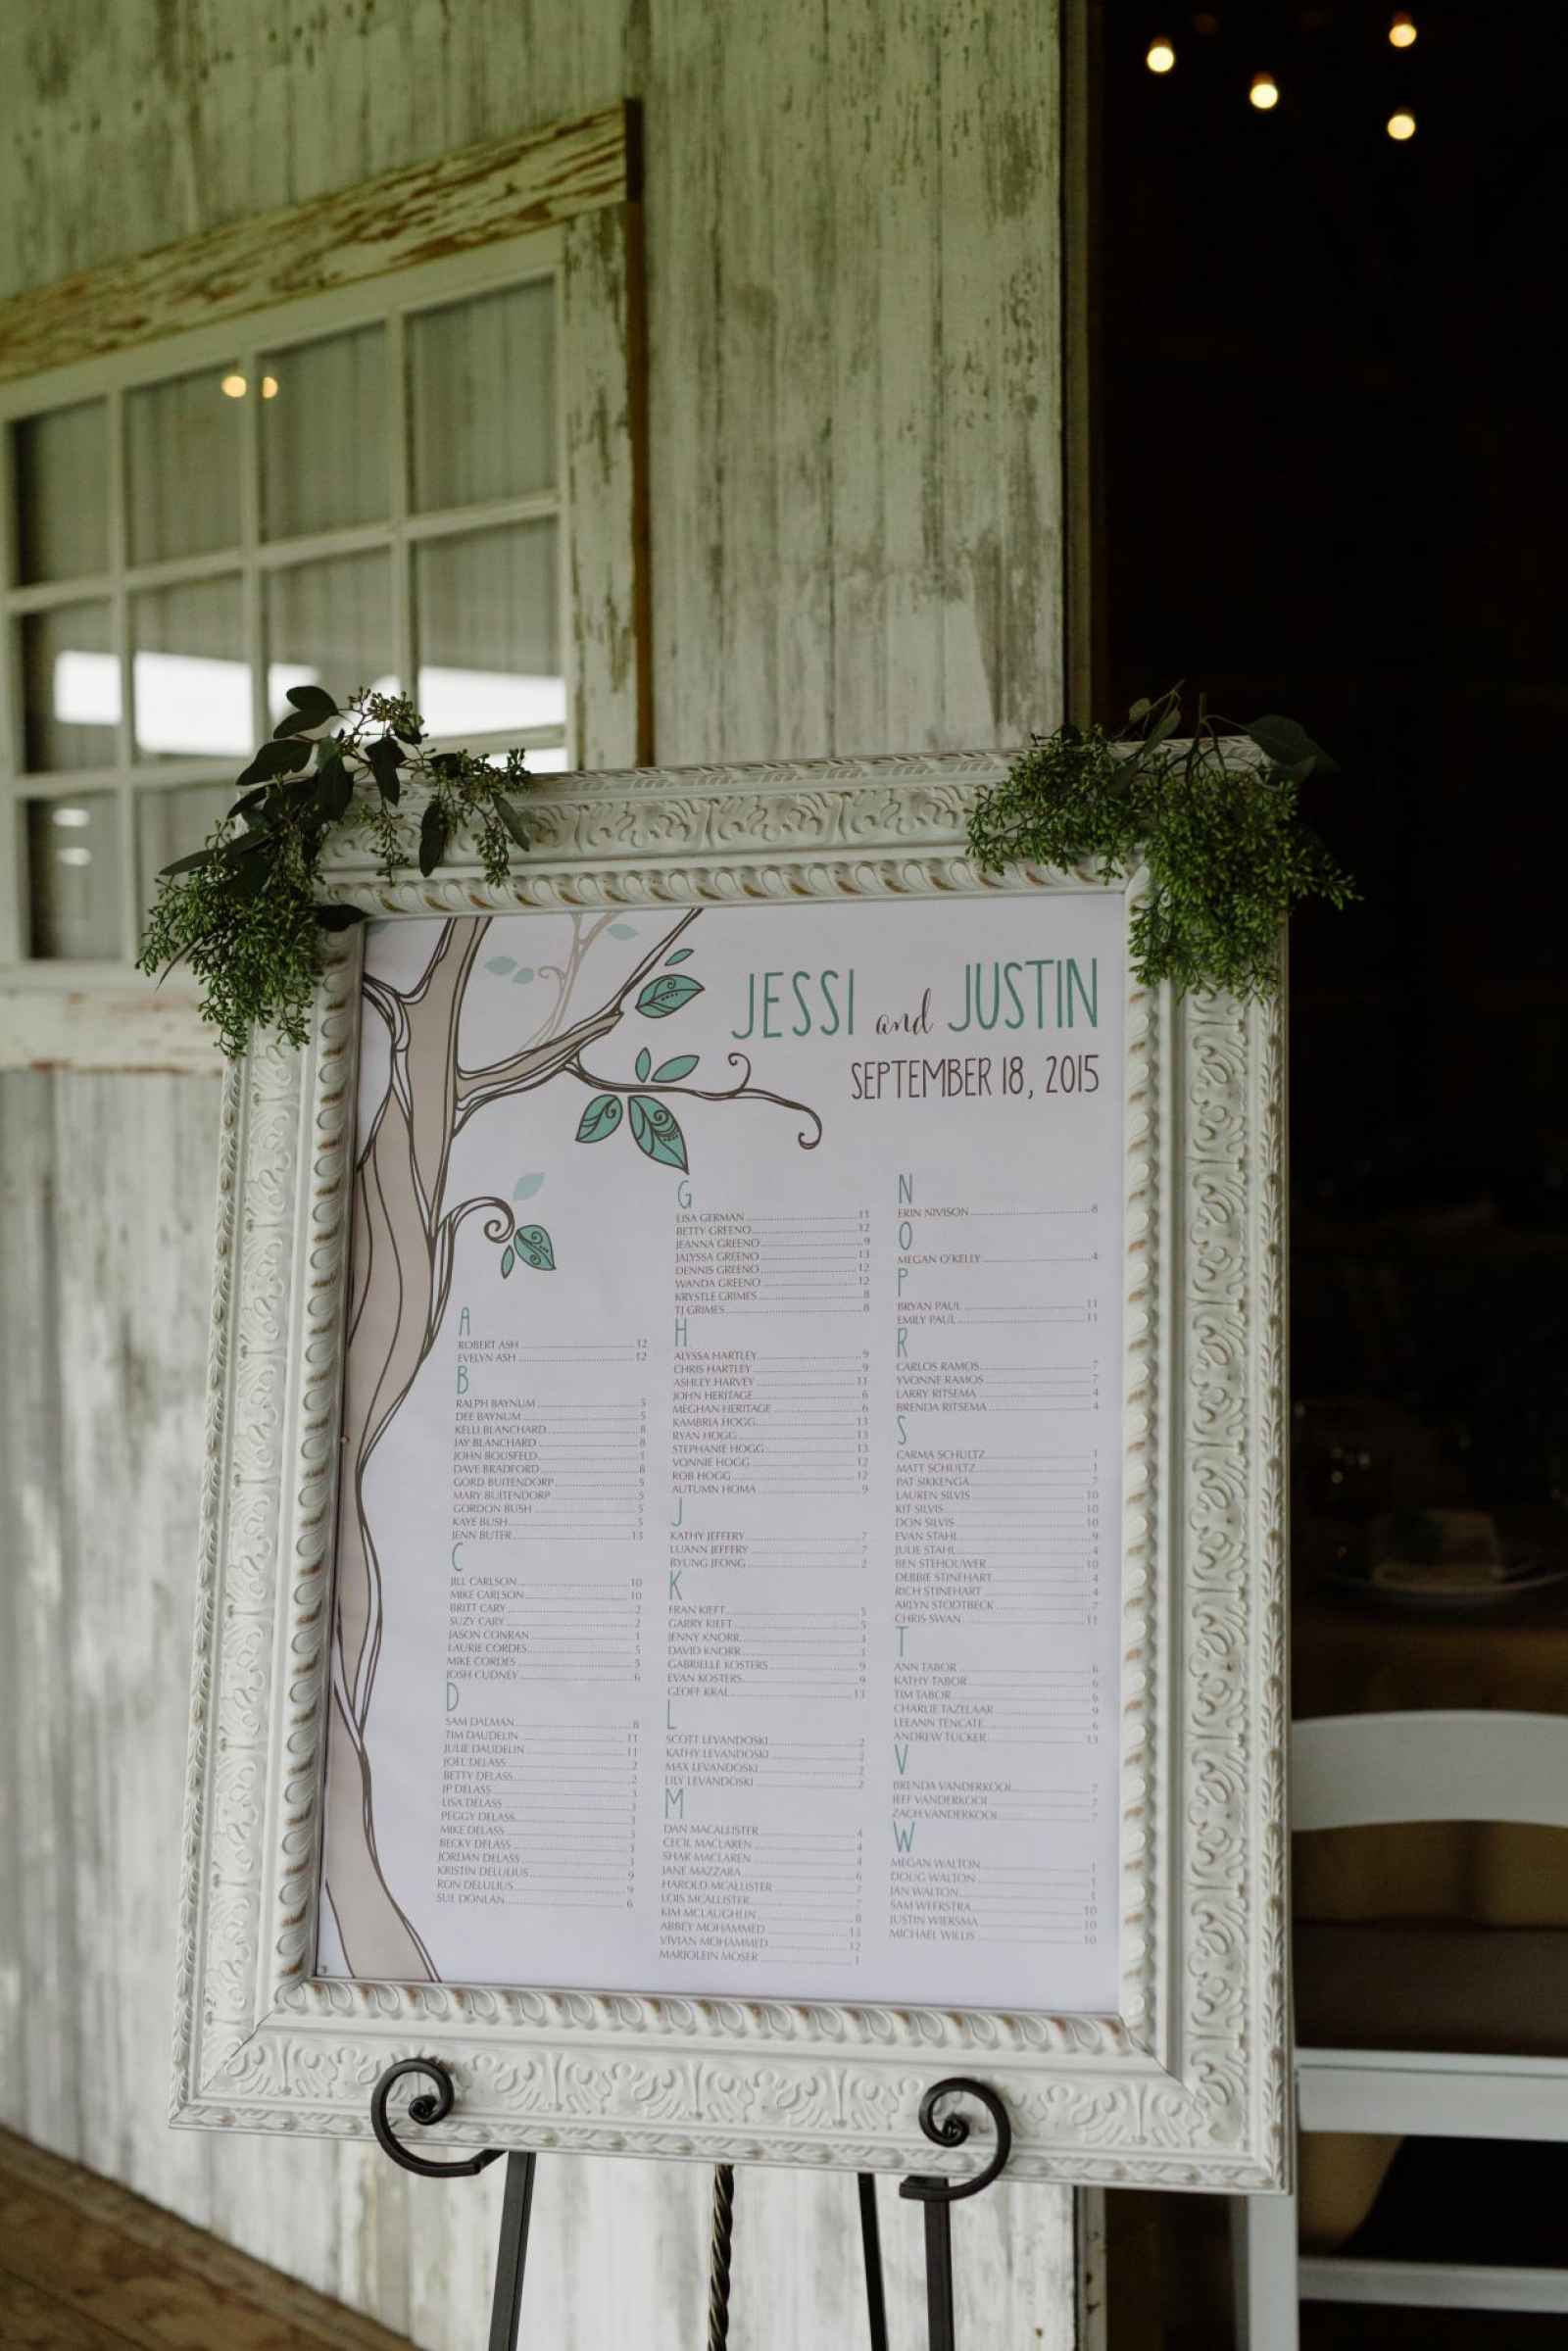 JESSI and JUSTIN
SEPTEMBER 18, 2015
A
ROBERT ASH 12
EVELYN ASH 12
B
RALPH BAYNUM 5
DEE BAYNUM 5
KELLI BLANCHARD 8
JAY BLANCHARD 8
JOHN BOUSFELD 1
DAVE BRADFORD 8
GORD BUITENDORP 5
MARY BUITENDORP 5
GORDON BUSH 5
KAYE BUSH 5
JENN BUTER 13
C
JILL CARLSON 10
MIKE CARLSON 10
BRITT CARY 2
SUZY CARY 2
JASON CONRAN 1
LAURIE CORDES 5
MIKE CORDES 5
JOSH CUDNEY 6
D
SAM DALMAN 8
TIM DAUDELIN 11
JULIE DAUDELIN 11
JOEL DELASS 2
BETTY DELASS 2
JP DELASS 3
LISA DELASS 3
PEGGY DELASS 3
MIKE DELASS 3
BECKY DELASS 3
JORDAN DELASS 3
KRISTIN DELULIUS 9
RON DELULIUS 9
SUE DONLAN 6
G
LISA GERMAN 11
BETTY GREENO 12
JEANNA GREENO 9
JALYSSA GREENO 13
DENNIS GREENO 12
WANDA GREENO 12
KRYSTLE GRIMES 8
TJ GRIMES 8
H
ALYSSA HARTLEY 9
CHRIS HARTLEY 9
ASHLEY HARVEY 11
JOHN HERITAGE 6
MEGHAN HERITAGE 6
KAMBRIA HOGG 13
RYAN HOGG 13
STEPHANIE HOGG 13
VONNIE HOGG 12
ROB HOGG 12
AUTUMN HOMA 9
J
KATHY JEFFERY 7
LUANN JEFFERY 7
BYUNG JEONG 2
K
FRAN KIEFT 5
GARRY KIEFT 5
JENNY KNORR
DAVID KNORR
GABRIELLE KOSTERS 9
EVAN KOSTERS 9
GEOFF KRAL 13
L
SCOTT LEVANDOSKI 2
KATHY LEVANDOSKI 2
MAX LEVANDOSKI 2
LILY LEVANDOSKI 2
M
DAN MACALLISTER 4
CECIL MACLAREN 4
SHAR MACLAREN 4
JANE MAZZARA 6
HAROLD MCALLISTER 7
LOIS MCALLISTER 7
KIM MCLAUGHLIN 8
ABBEY MOHAMMED 13
VIVIAN MOHAMMED 12
MARJOLEIN MOSER 1
N
ERIN NIVISON 8
O
MEGAN O'KELLY 4
P
BRYAN PAUL 11
EMILY PAUL 11
R
CARLOS RAMOS 7
YVONNE RAMOS 7
LARRY RITSEMA 4
BRENDA RITSEMA 4
S
CARMA SCHULTZ 1
MATT SCHULTZ 1
PAT SIKKENGA 7
LAUREN SILVIS 10
KIT SILVIS 10
DON SILVIS 10
EVAN STAHL 9
JULIE STAHL 4
BEN STEHOUWER 10
DEBBIE STINEHART 4
RICH STINEHART 4
ARLYN STODTBECK 7
CHRIS SWAN 11
T
ANN TABOR 6
KATHY TABOR 6
TIM TABOR 6
CHARLIE TAZELAAR 9
LEEANN TENCATE 6
ANDREW TUCKER 13
V
BRENDA VANDERKOOI 7
JEFF VANDERKOOI 7
ZACH VANDERKOOI 7
W
MEGAN WALTON 1
DOUG WALTON 1
JAN WALTON 1
SAM WEERSTRA 10
JUSTIN WIERSMA 10
MICHAEL WILLIS 10